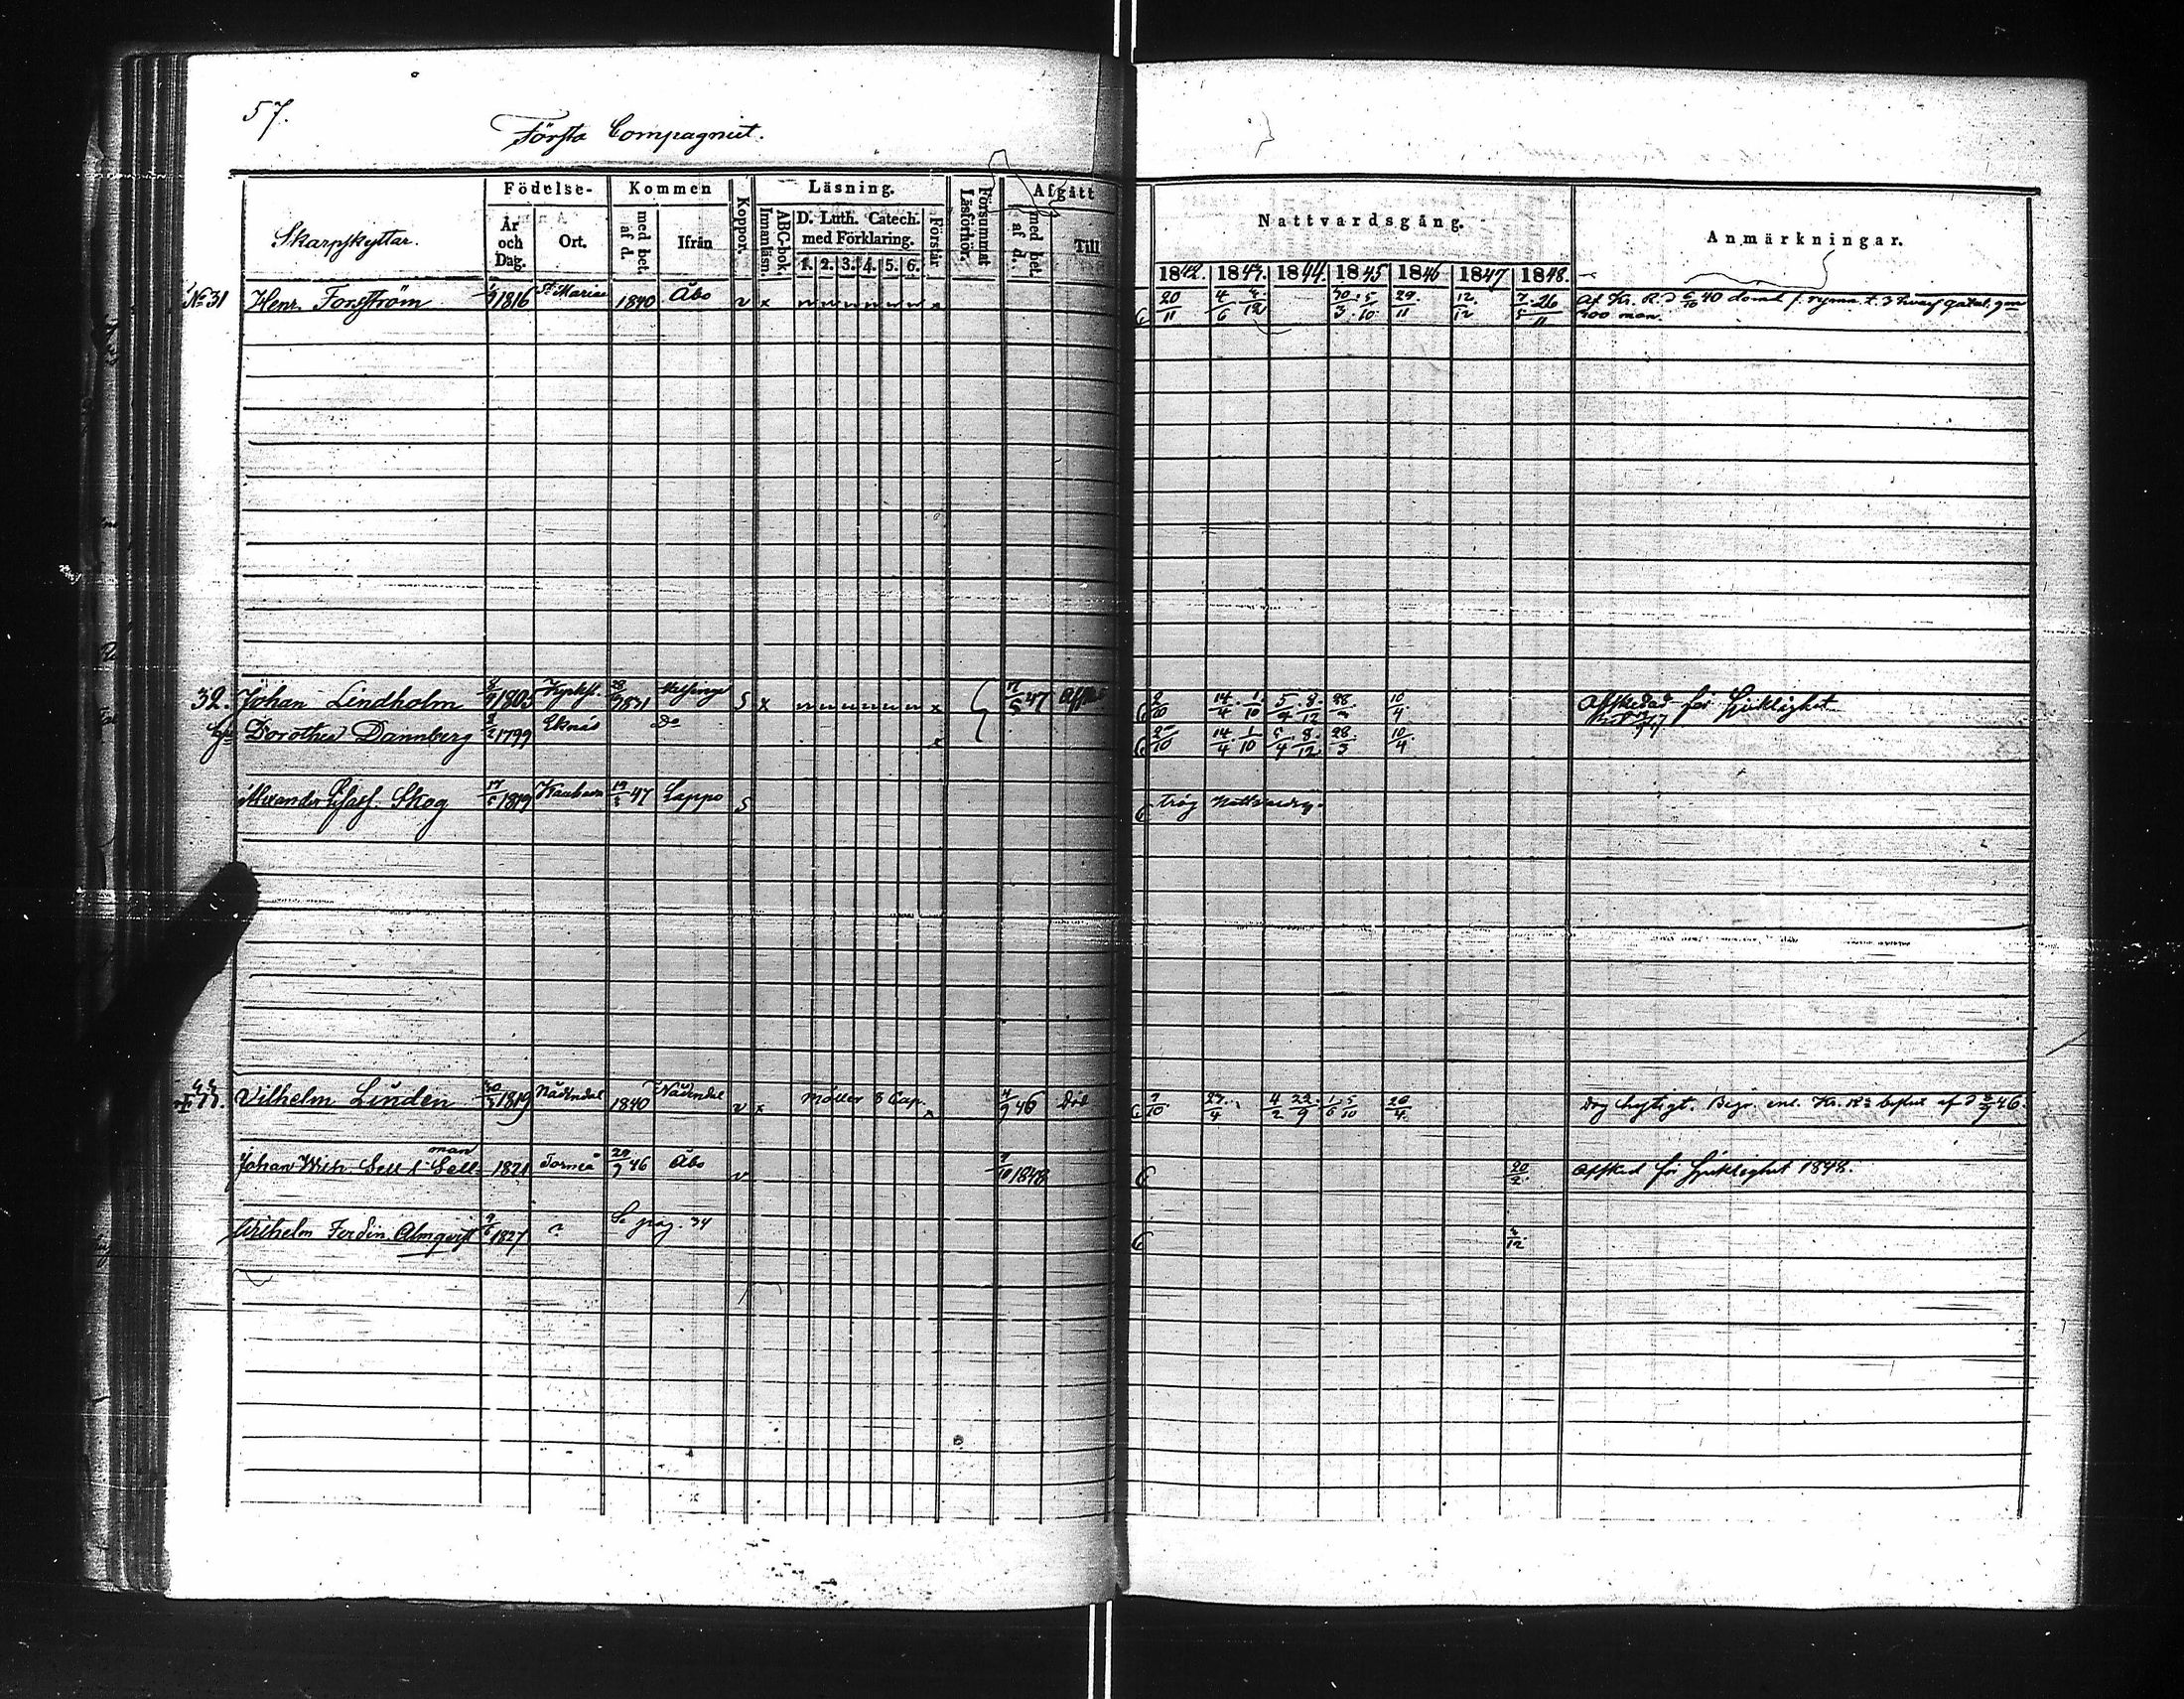 57.
Första Compagniet.
Skarpskyttar.
Födelse-
År och Dag.
Ort.
Kommen
med bet. af d.
Ifrån
Koppor.
Läsning.
ABC-bok. Innanläsn.
D. Luth. Catech. med Förklaring.
1. 2. 3. 4. 5. 6.
Förstår
Försummat Läsförhör.
Afgått
med bet. af d.
Till
Nattvardsgång.
1842. 1843. 1844. 1845 1846 1847 1848.
Anmärkningar.
No 31 Henr. Forsström 1816 St Mariae 1840 Åbo v x x 20/11 4/6 30/3 5/10 29/11 12/12 26/11 Af Kr. R. d 40 dömd f. rymn. t. 3 gatul. gm
300 man.
32. Johan Lindholm 1803 1831 Helsinge S x x 17/5 47 14/4 1/10 5/4 8/12 28 10/4 Afskedad för sjuklighet
Dorothea Dannberg 1799 Ekenäs Do x 14/4 1/10 5/4 8/12 28/3 10/4
Alexander Skog 17/5 1819 Kauhava 47 Lappo S 6 trög
33. Vilhelm Linden 1819 Nådendal 1840 Nådendal v x Möller 3 Cap. x 46 Död 6 7/10 4/2 22/9 1/6 5/10 20/4 Dog hastigt. Begr. enl. Kr. Rs beslut af d 46
Johan Wilh. Sell l. Sellman 1821 Torneå 46 Åbo v 7/10 1848 6 20/2 Afsked för sjuklighet 1848.
Wilhelm Ferdin. Almqvist 1827 ? Se pag. 34 6